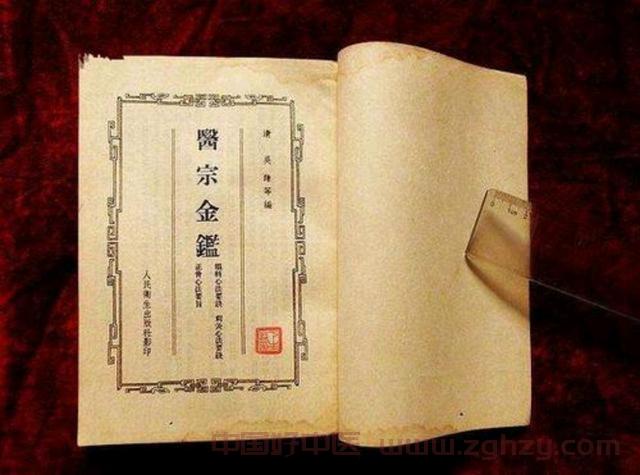 清 吳謙等編
醫宗金鑑
眼科心法要訣 刺灸心法要訣
正骨心法要旨
人民衛生出版社影印
中国好中医 www.zghzy.com